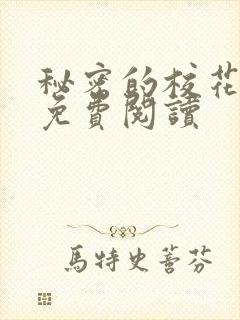 秘密的校花
免費閱讀
馬特史蒈芬